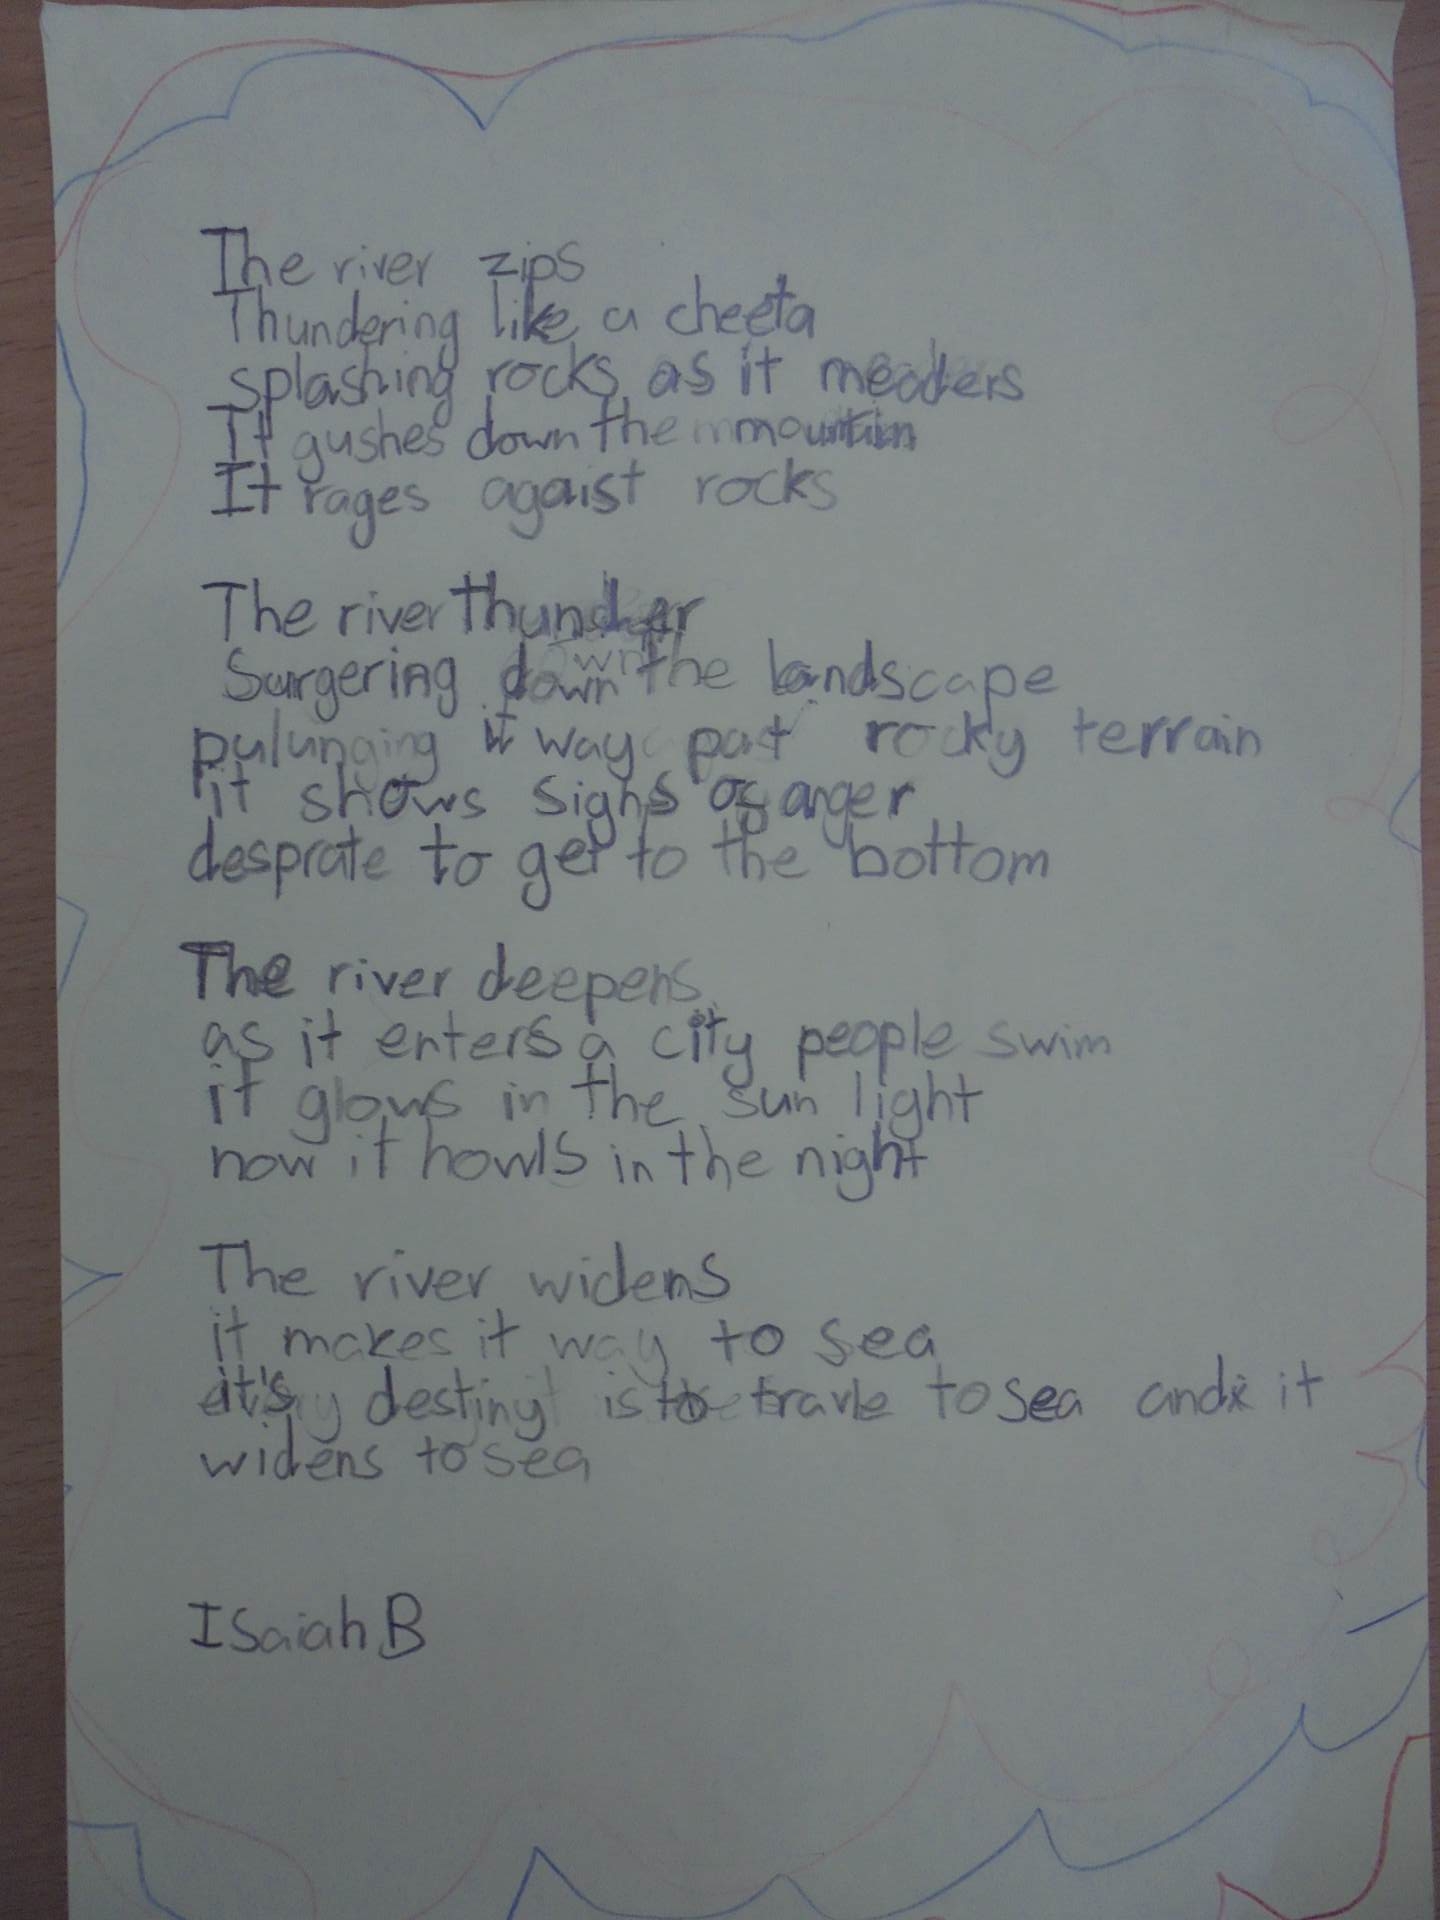 The river zips
Thundering like a cheeta
splashing rocks as it meaders
It gushes down the mountain
It rages agaist rocks
The river thunder
Surgering down the landscape
pulunging it way past rocky terrain
it shows sighs of anger
desprate to get to the bottom
The river deepens
as it enters a city people swim
it glows in the sun light
now it howls in the night
The river widens
it makes it way to sea
it's destiny is to travle to sea and it
widens to sea
Isaiah B